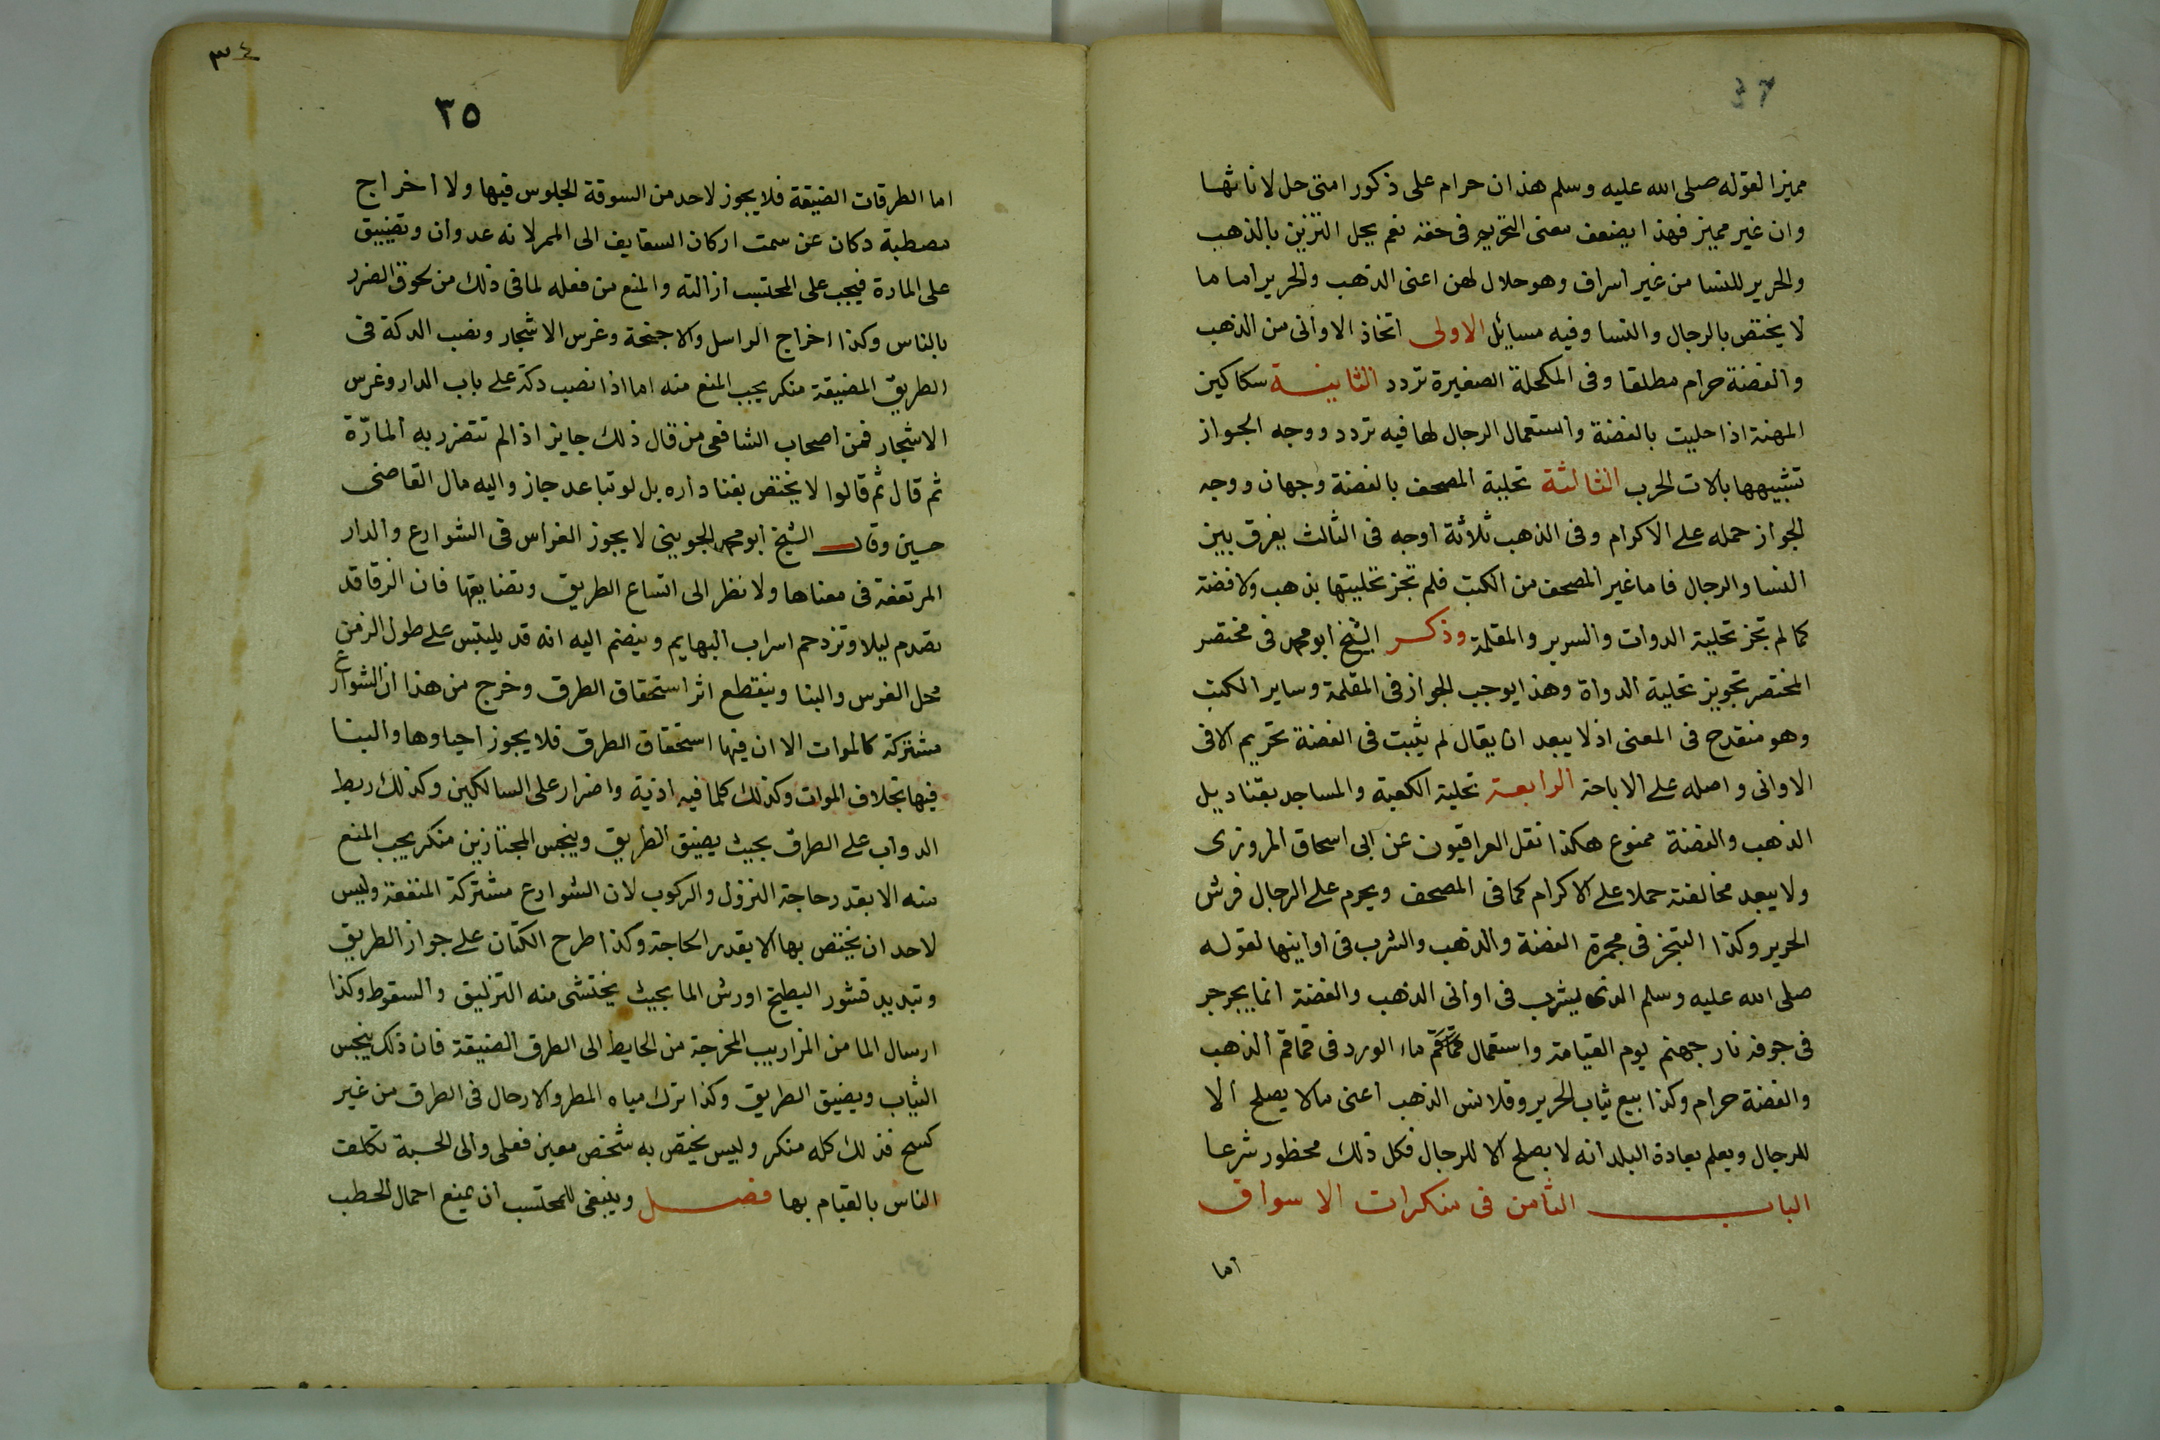 مميزا لقوله صلى الله عليه وسلم هذان حرام على ذكور امتى حل لاناثها
وان غير مميز فهذا يضعف معنى التحريم فى حقه نعم يحل التزين بالذهب
والحرير للنسا من غير اسراف وهو حلال لهن اعنى الذهب والحرير اما ما
لا يختص بالرجال والنسا وفيه مسايل الاولى اتخاذ الاوانى من الذهب
والفضة حرام مطلقا وفى المكحلة الصغيرة تردد الثانية سكاكين
المهنة اذا حليت بالفضة واستعمال الرجال لها فيه تردد ووجه الجواز
تشبيهها بالات الحرب الثالثة تحلية المصحف بالفضة وجهان ووجه
الجواز حمله على الاكرام وفى الذهب ثلاثة اوجه فى الثالث يفرق بين
النسا والرجال فاما غير المصحف من الكتب فلم تجز تحليتها بذهب ولا فضة
كما لم تجز تحلية الدوات والسرير والمقلمة وذكر الشيخ ابو محمد فى مختصر
المختصر تجويز تحلية الدواة وهذا يوجب الجواز فى المقلمة وساير الكتب
وهو منقدح فى المعنى اذ لا يبعد ان يقال لم يثبت فى الفضة تحريم الا فى
الاوانى واصله على الاباحة الرابعة تحلية الكعبة والمساجد بقناديل
الذهب والفضة ممنوع هكذا نقل العراقيون عن ابى اسحاق المروزى
ولا يبعد مخالفته حملا على الاكرام كما فى المصحف ويحرم على الرجال فرش
الحرير وكذا التبخر فى مجمرة الفضة والذهب والشرب فى اوانيها لقوله
صلى الله عليه وسلم الذى يشرب فى اوانى الذهب والفضة انما يجرجر
فى جوفه نار جهنم يوم القيامة واستعمال ماء الورد فى قماقم الذهب
والفضة حرام وكذا بيع ثياب الحرير وقلانس الذهب اعنى مالا يصلح الا
للرجال ويعلم بعادة البلد انه لا يصلح الا للرجال فكل ذلك محظور شرعا
الباب الثامن فى منكرات الاسواق
اما
٣٤
٣٥
اما الطرقات الضيقة فلا يجوز لاحد من السوقة الجلوس فيها ولا اخراج
مصطبة دكان عن سمت اركان السقايف الى الممر لانه عدوان وتضييق
على المارة فيجب على المحتسب ازالته والمنع من فعله لما فى ذلك من لحوق الضرر
بالناس وكذا اخراج الراسل والاجنحة وغرس الاشجار ونصب الدكة فى
الطريق المضيقة منكر يجب المنع منه اما اذا نصب دكة على باب الدار وغرس
الاشجار فمن اصحاب الشافعى من قال ذلك جايز اذا لم تتضرر به المارّة
ثم قال ثم قالوا لا يختص بفنا داره بل لو تباعد جاز واليه مال القاضى
حسين وقال الشيخ ابو محمد الجوينى لا يجوز الغراس فى الشوارع والدار
المرتفعة فى معناها ولا نظر الى اتساع الطريق وتضايقها فان الزقاق قد
تصدم ليلا وتزدحم اسراب البهايم وينضم اليه انه قد يلتبس على طول الزمن
محل الغرس والبنا وينقطع اثر استحقاق الطرق وخرج من هذا ان الشوارع
مشتركة كالموات الا ان فيها استحقاق الطرق فلا يجوز احياوها والبنا
فيها بخلاف الموات وكذلك كلما فيه اذية واضرار على السالكين وكذلك ربط
الدواب على الطرق بحيث يضيق الطريق وينجس المجتازين منكر يجب المنع
منه الا بقدر حاجة النزول والركوب لان الشوارع مشتركة المنفعة وليس
لاحد ان يختص بها الا بقدر الحاجة وكذا طرح الكتان على جوار الطريق
وتبديد قشور البطيخ او رش الما بحيث يختشى منه التزليق والسقوط وكذا
ارسال الما من المزاريب المخرجة من الحايط الى الطرق الضيقة فان ذلك ينجس
الثياب ويضيق الطريق وكذا ترك مياه المطر والارحال فى الطرق من غير
كسح فذلك كله منكر وليس يختص به شخص معين فعلى والى الحسبة تكلف
الناس بالقيام بها فصل وينبغى للمحتسب ان يمنع احمال الحطب